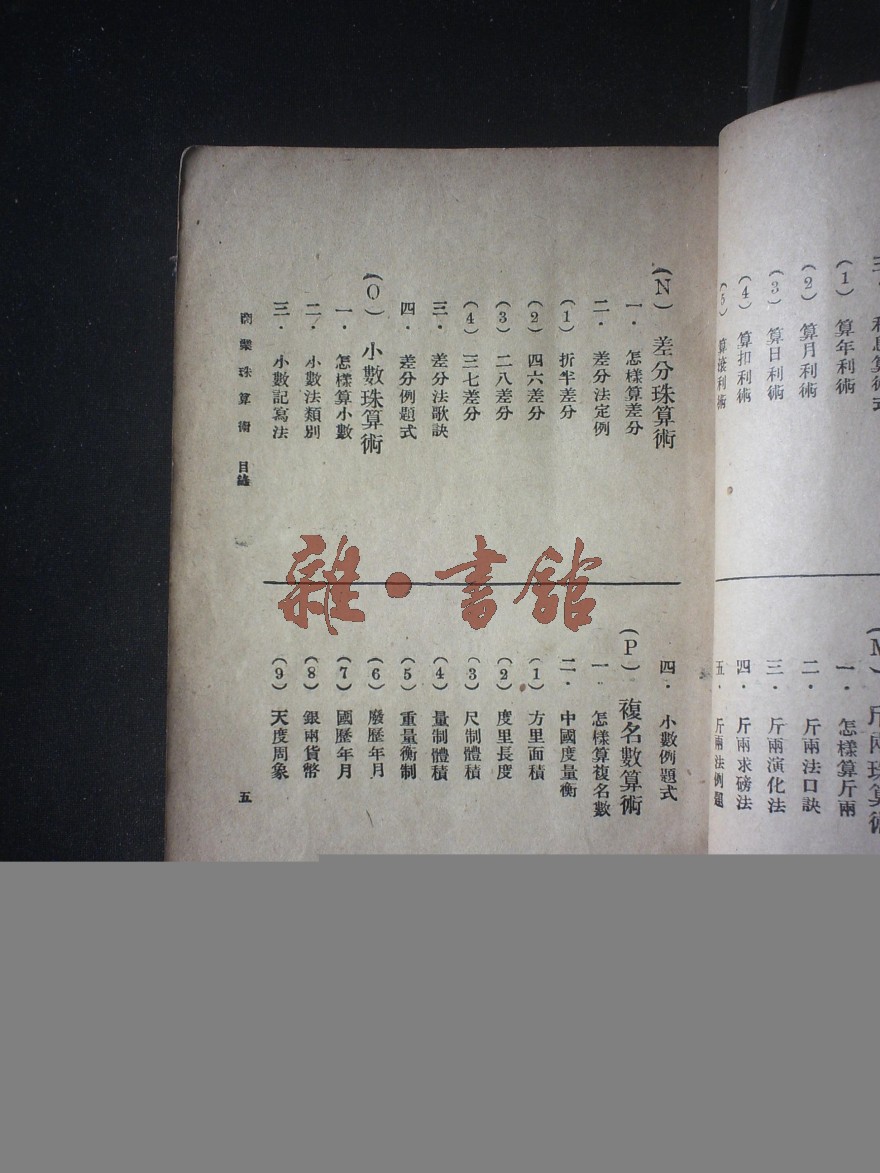 三・利息算術式
(1)算年利術
(2)算月利術
(3)算日利術
(4)算扣利術
(5)算滾利術
(M)斤兩珠算術
一・怎樣算斤兩
二・斤兩法口訣
三・斤兩演化法
四・斤兩求磅法
五・斤兩法例題
(N)差分珠算術
一・怎樣算差分
二・差分法定例
(1)折半差分
(2)四六差分
(3)二八差分
(4)三七差分
三・差分法歌訣
四・差分例題式
(O)小數珠算術
一・怎樣算小數
二・小數法類別
三・小數記寫法
四・小數例題式
(P)複名數算術
一・怎樣算複名數
二・中國度量衡
(1)方里面積
(2)度里長度
(3)尺制體積
(4)量制體積
(5)重量衡制
(6)廢歷年月
(7)國歷年月
(8)銀兩貨幣
(9)天度周象
商業珠算術 目錄
五
雜・書館